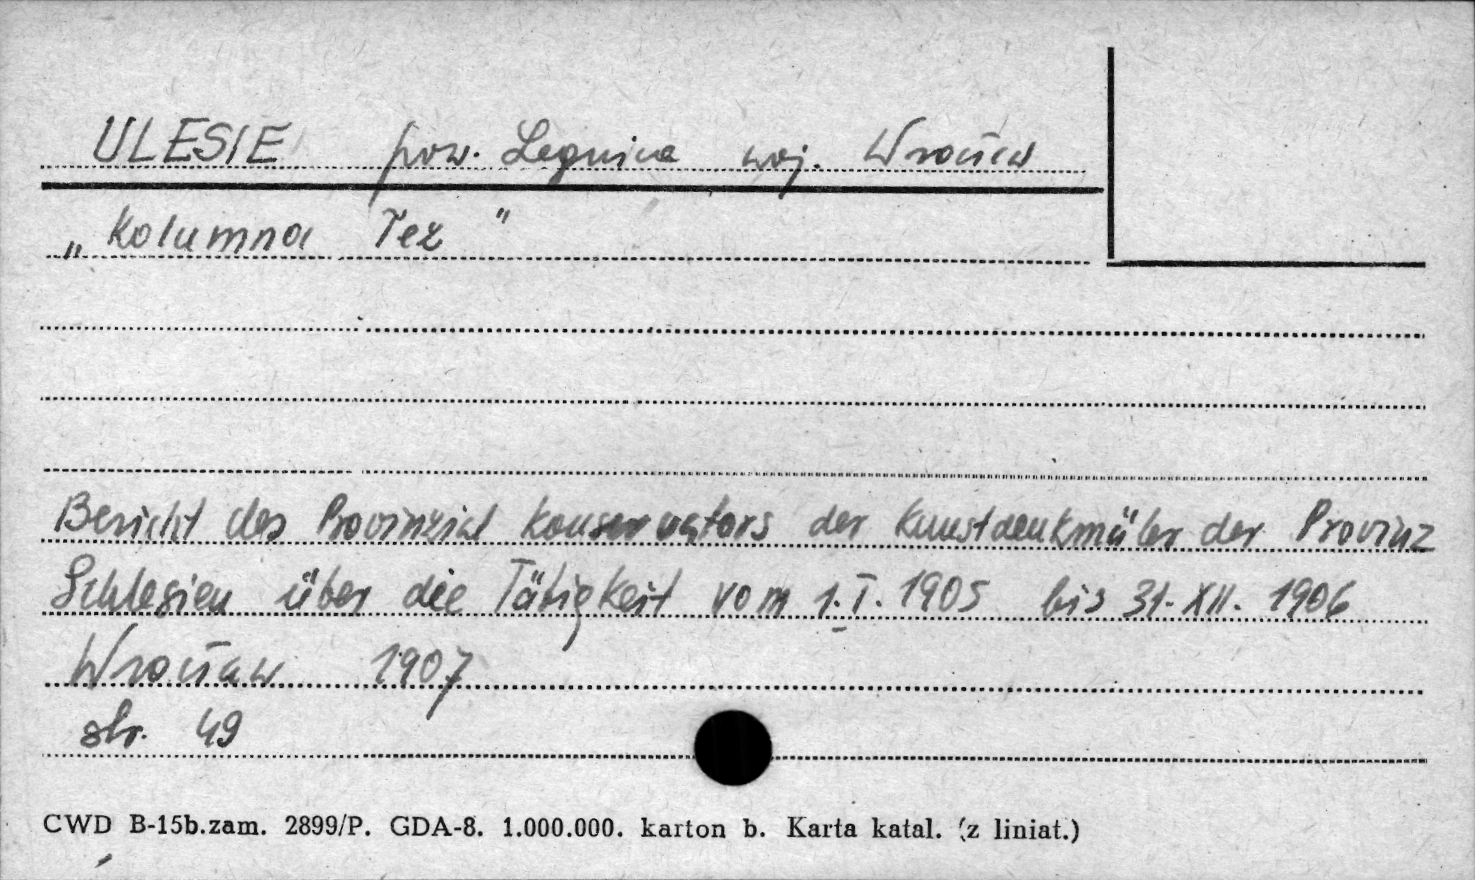 ULESIE pow. Legnica woj. Wrocław
„Kolumna Łez"
Bericht des Provinzial Konservators der Kunstdenkmäler der Provinz
Schlesien über die Tätigkeit vom 1.I.1905 bis 31.XII.1906
Wrocław 1907
str. 49
CWD B-15b.zam. 2899/P. GDA-8. 1.000.000. karton b. Karta katal. (z liniat.)